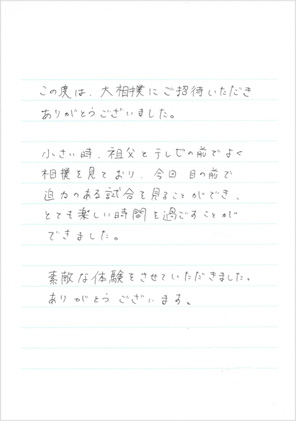 この度は、大相撲にご招待いただき
ありがとうございました。
小さい時、祖父とテレビの前でよく
相撲を見ており、今回 目の前で
迫力のある試合を見ることができ、
とても楽しい時間を過ごすことが
できました。
素敵な体験をさせていただきました。
ありがとうございます。